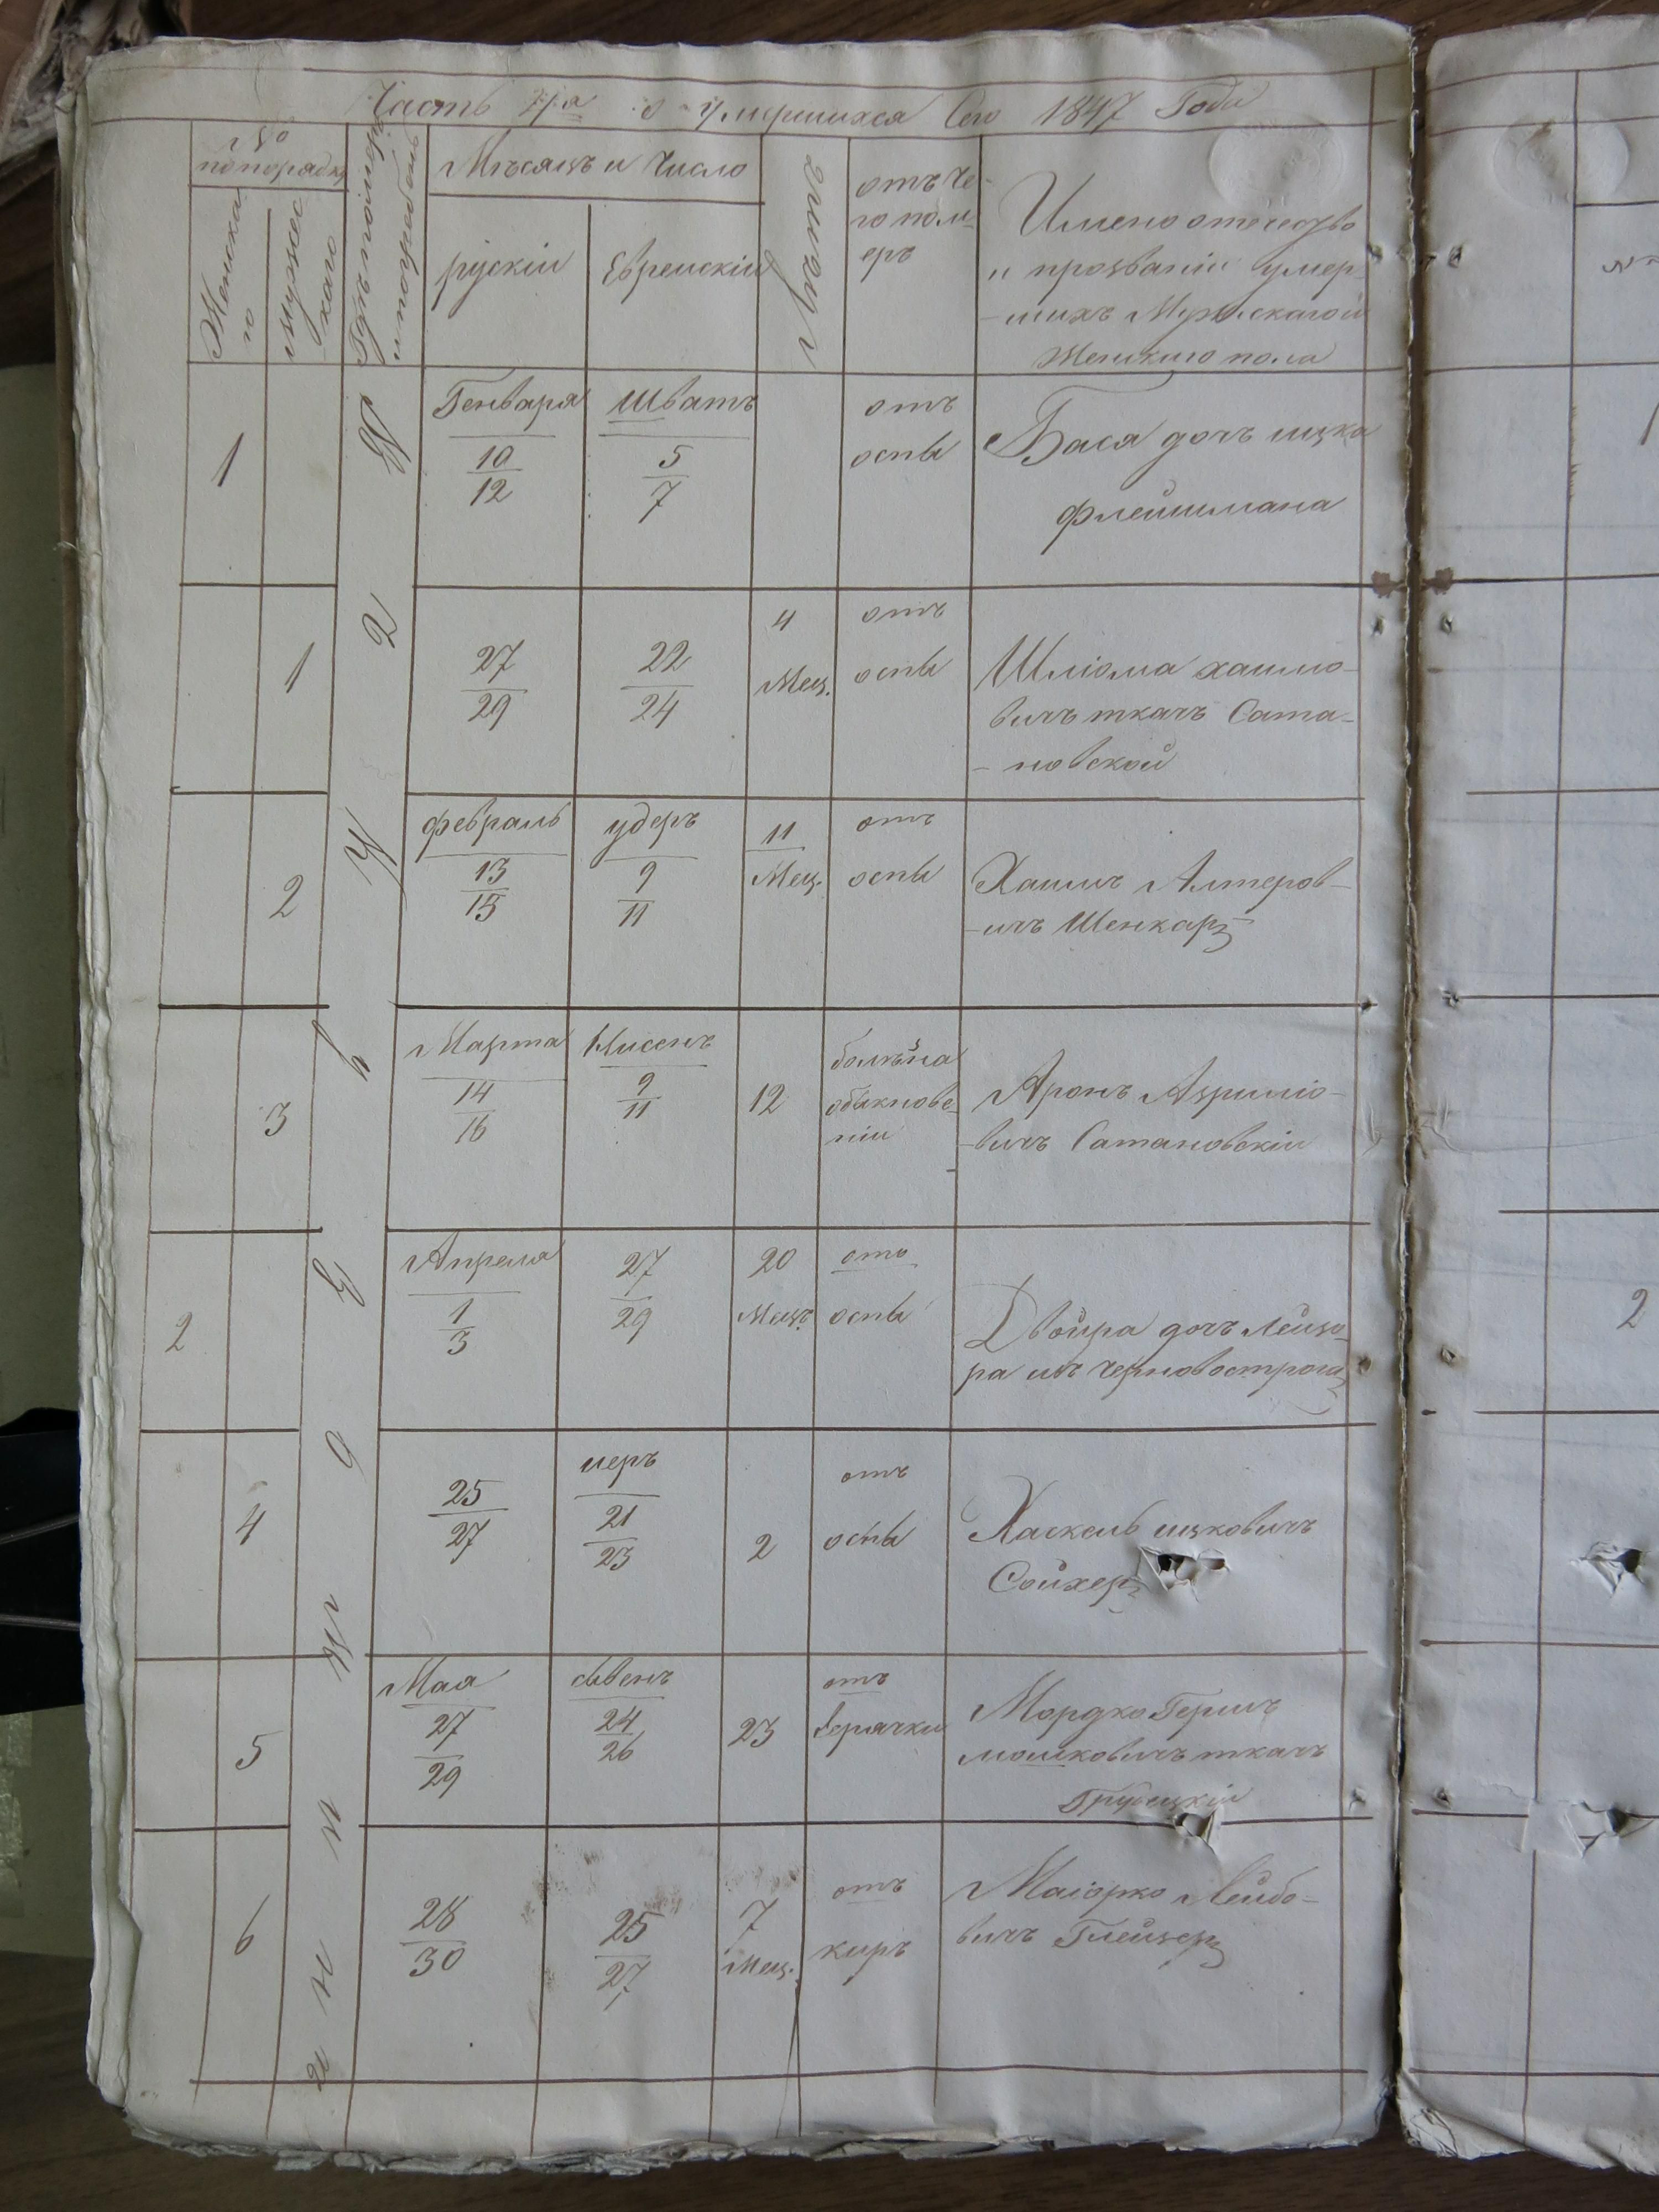 Часть о умершихся Сего 1847 Года
№
попорядку
Женска
го
мужес
каго
Гдѣ померъ
и погребенъ
Мѣсяцъ и Число
рускiи
Еврейскiи
Лѣта
отъ че-
го пом-
еръ
Имено отечество
и прозванiи умер-
-шихъ Мужскаго и
Женскаго пола
1
Генваря
10
12
Шватъ
5
7
отъ
оспы
Бася дочъ ицка
флейшмана
1
27
29
22
24
4
Мец.
отъ
оспы
Шлiома хаимо-
вичъ ткачъ Сата-
-новской
2
февраль
13
15
удеръ
9
11
11
Мец.
отъ
оспы
Хаимъ Алтеров-
-ичъ Шенкаръ
3
Марта
14
16
Нисенъ
9
11
12
болѣзна
обыкнове-
нiи
Аронъ Азрилiо-
-вичъ Сатановскiи
2
Апреля
1
3
27
29
20
Мецъ
отъ
оспы
Двойра дочъ лейзо-
ра изъ Чорновострога
4
25
27
иеръ
21
23
2
отъ
оспы
Хаскель ицковичъ
Сойхеръ
5
Мая
27
29
сывенъ
24
26
23
отъ
горячки
Мордко Гершъ
мошковичъ ткачъ
6
28
30
25
27
7
Мец.
отъ
киръ
Маiорко Лейбо-
вичъ Глейзеръ
2